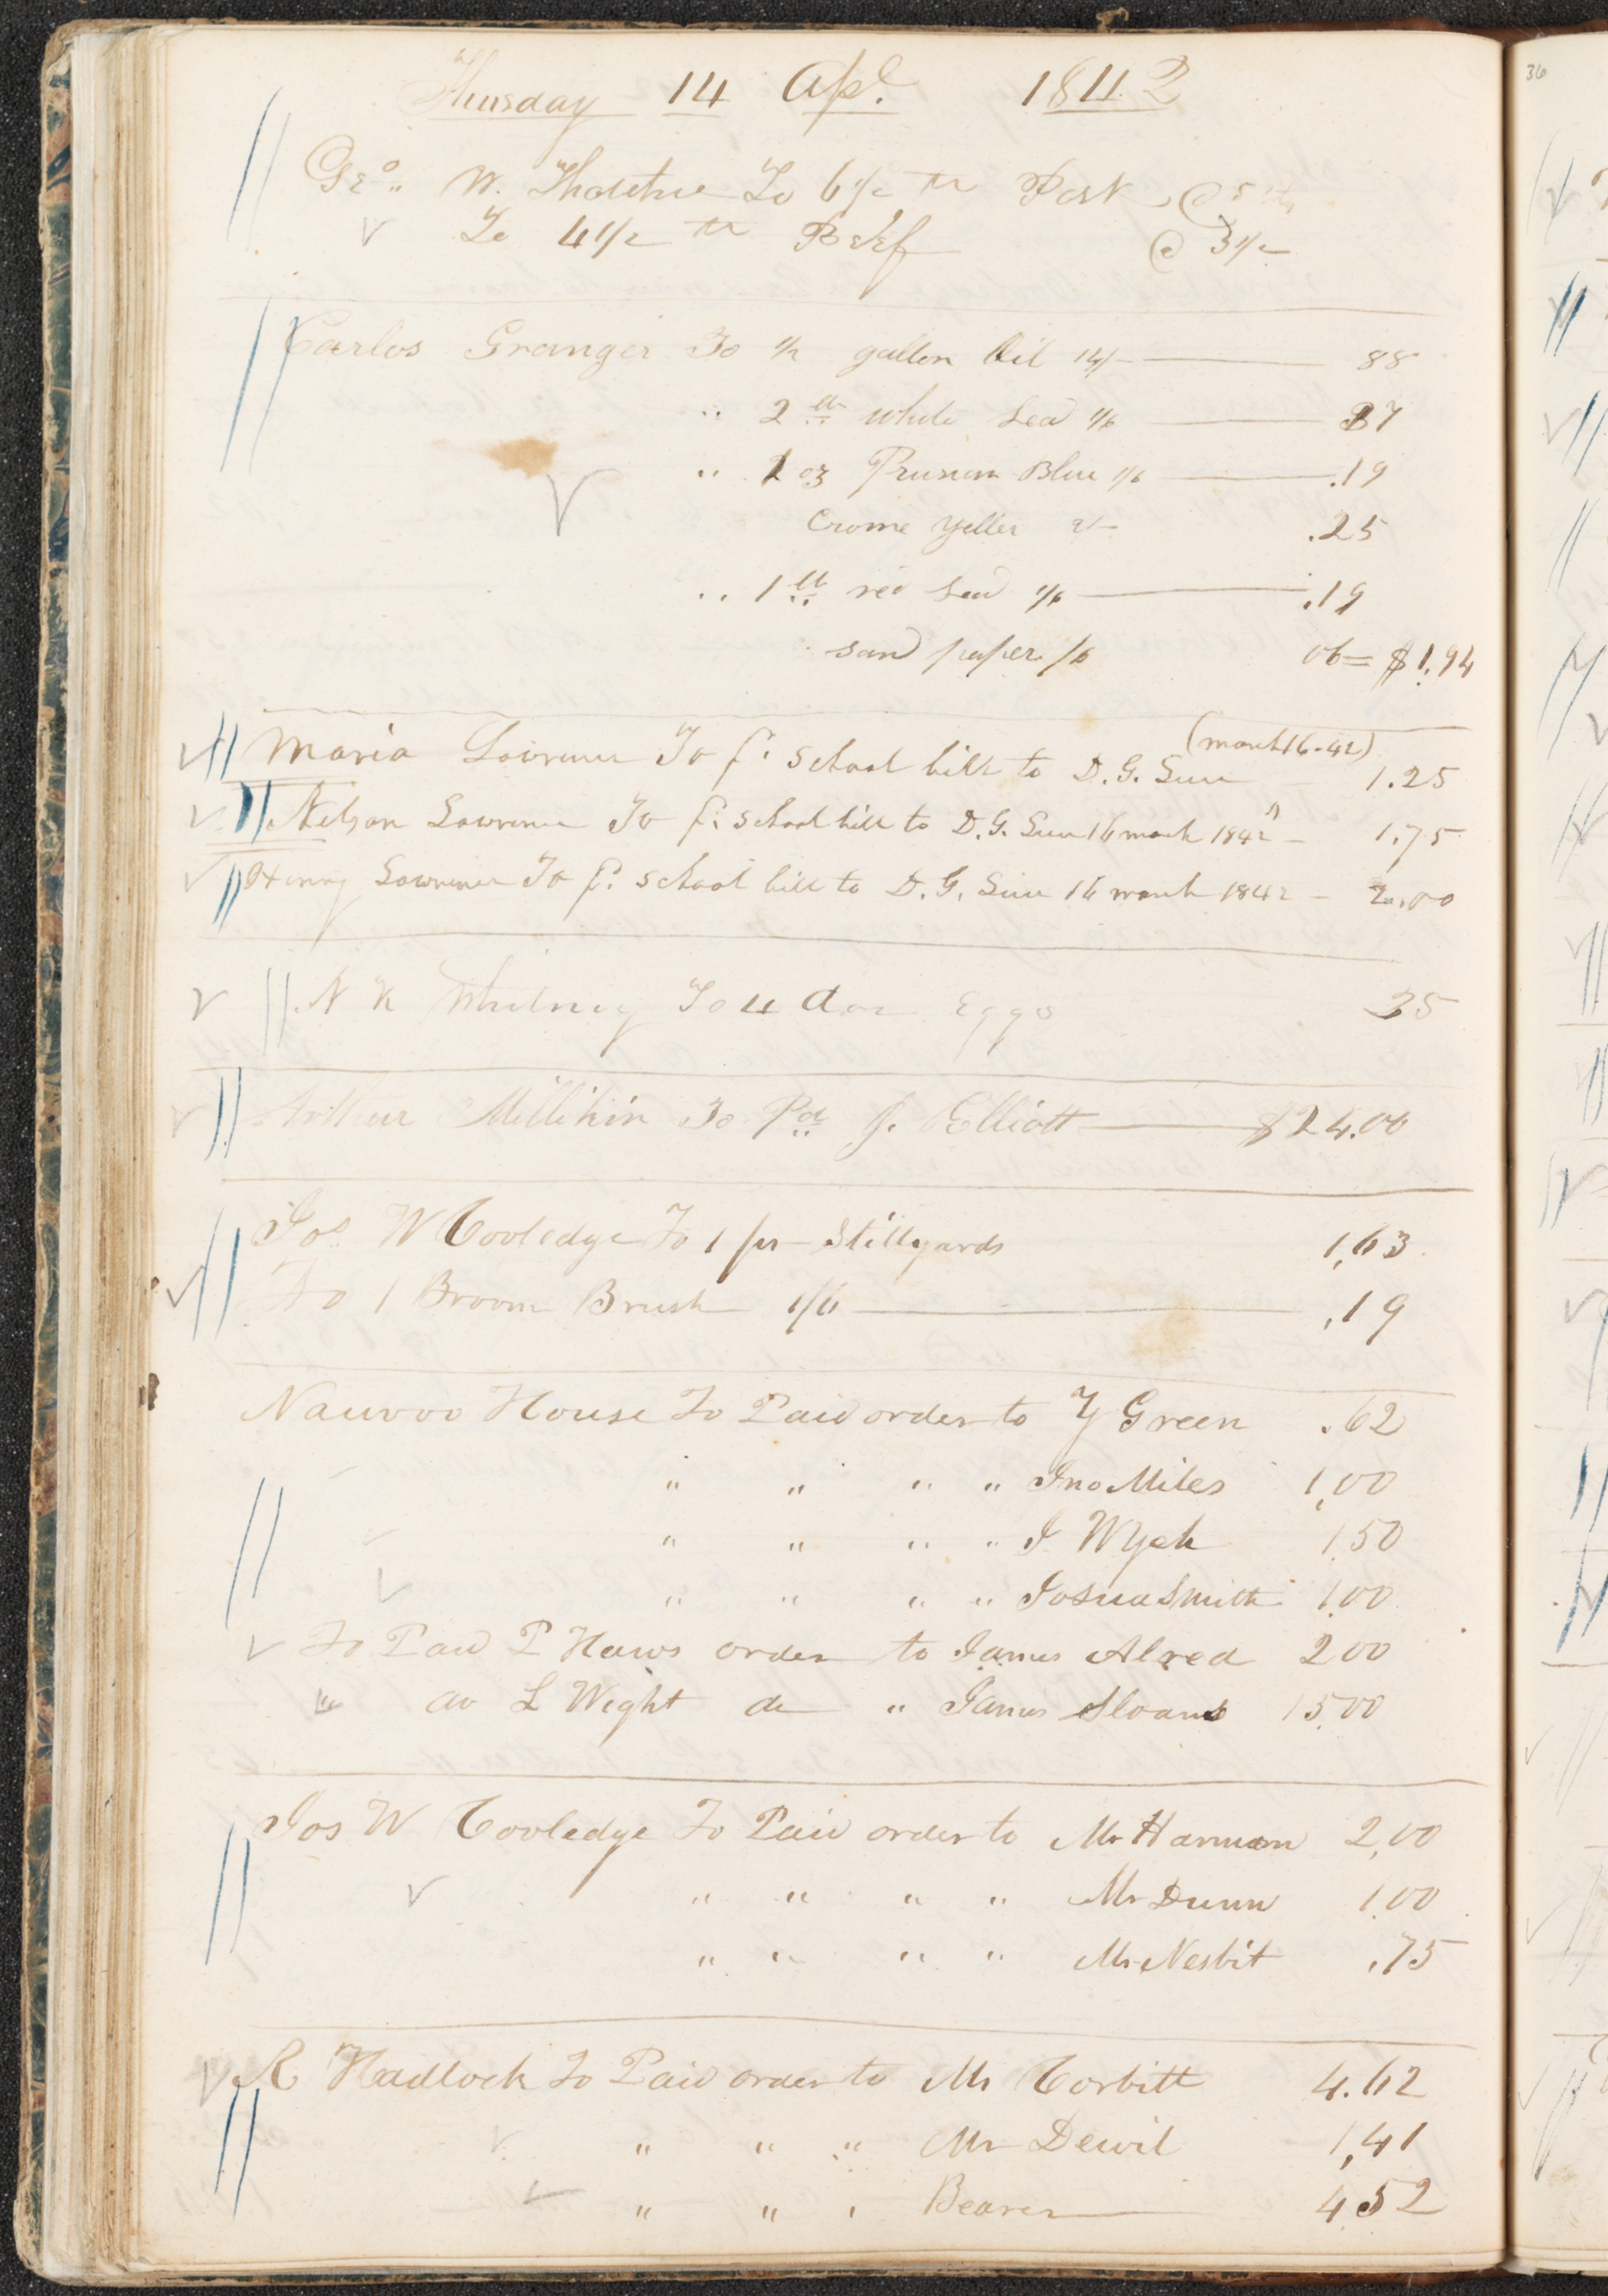 Thursday 14 Apl. 1842
Geo. W. To 6 1/2 lb Pork @ 5
To 4 1/2 lb Beef @ 3 1/2
Carlos Granger To 1/2 gallon Oil 14/- 88
" 2 lb white Lead 1/6 37
" 1 oz Prusian Blue 1/6 .19
Crome Yeller 2/- .25
" 1 lb red Lead 1/6 .19
sand paper /6 06 = $1.94
(march 16-42)
Maria Lawrence To p. School bill to D. G. 1.25
Nelson Lawrence To p. School bill to D. G. 16 march 1842 - 1.75
Henry Lawrence To p. school bill to D. G. 16 march 1842 - 2.00
N K Whitney To 4 doz Eggs 25
Arthur Millikin To Pd J. Elliott $24.00
Jos W Cooledge To 1 pr Stillyards 1,63
To 1 Broom Brush 1/6 ,19
Nauvoo House To Paid order to Y Green .62
" " " " Jno Miles 1,00
" " " " J Wych 1.50
" " " " Josua Smith 1.00
To Paid P Haws order to James Alred 2.00
" do L Wight do " James Sloan 15.00
Jos W Cooledge To Paid order to Mr Harmon 2,00
" " " " Mr Dunn 1.00
" " " " Mr Nesbit .75
R Hadlock To Paid order to Mr Corbitt 4.62
" " " Mr Dewil 1,41
" " " Bearer 4.52
36